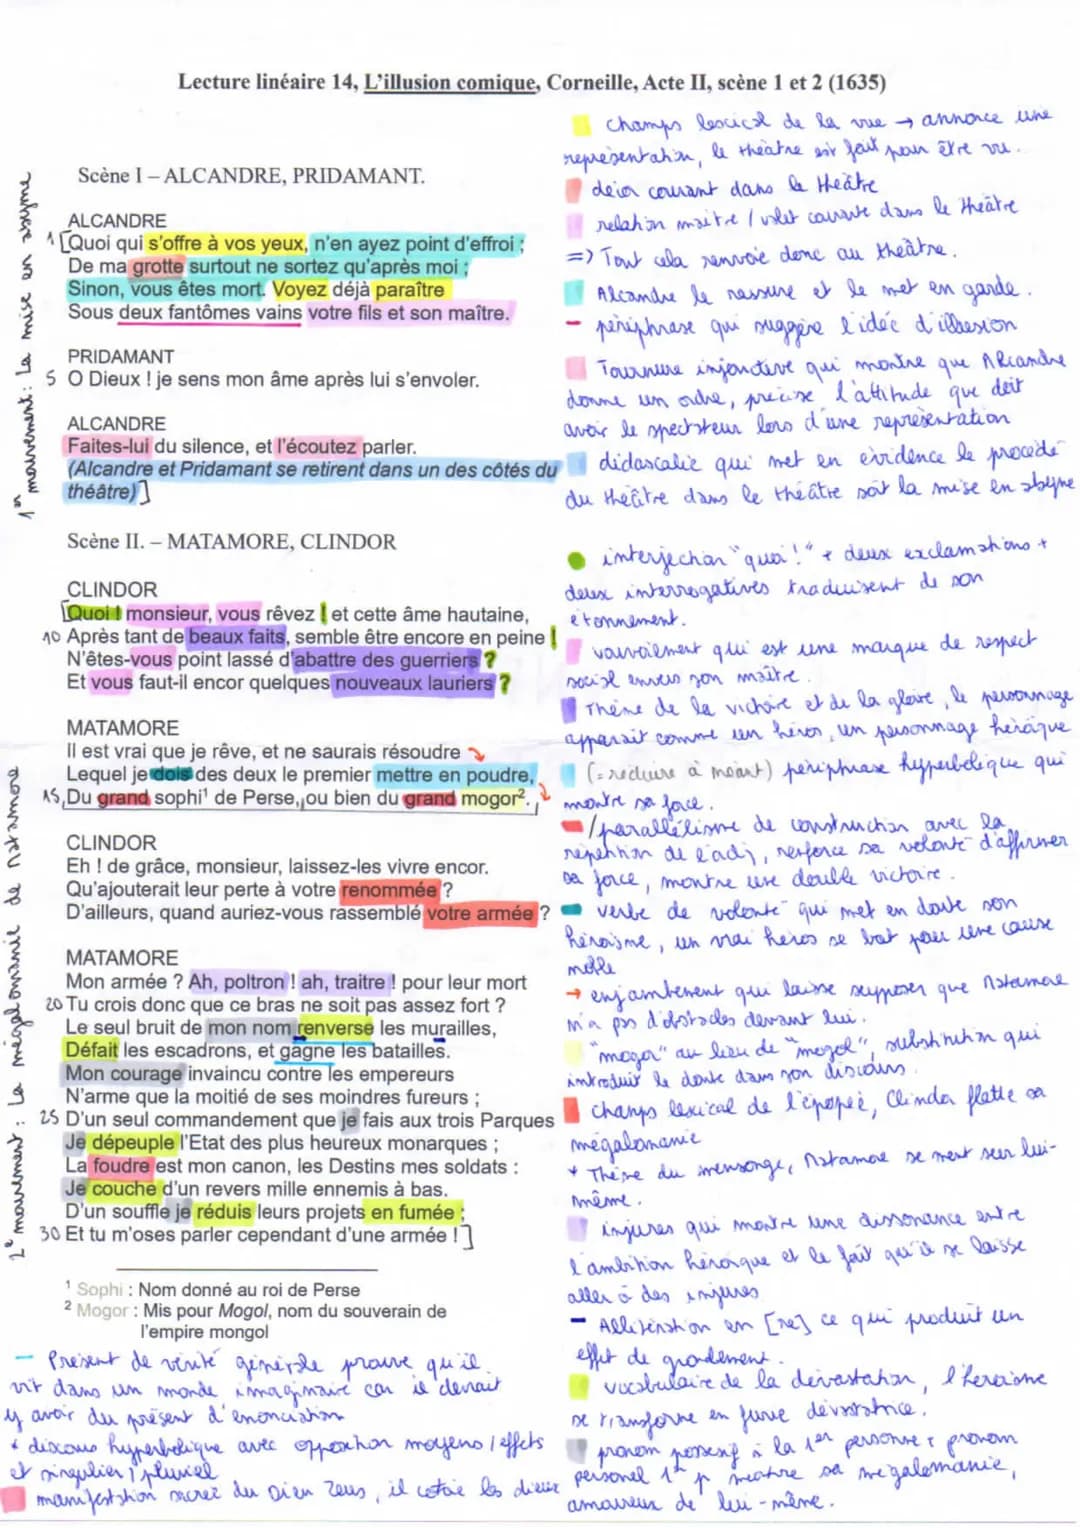 Lecture linéaire 14, L'illusion comique, Corneille, Acte II, scène 1 et 2 (1635)
1er mouvement : La mise en abyme
Scène I – ALCANDRE, PRIDAMANT.
ALCANDRE
1 [Quoi qui s'offre à vos yeux, n'en ayez point d'effroi ;
De ma grotte surtout ne sortez qu'après moi ;
Sinon, vous êtes mort. Voyez déjà paraître
Sous deux fantômes vains votre fils et son maître.
PRIDAMANT
5 O Dieux ! je sens mon âme après lui s'envoler.
ALCANDRE
Faites-lui du silence, et l'écoutez parler.
(Alcandre et Pridamant se retirent dans un des côtés du
théâtre)]
Scène II. – MATAMORE, CLINDOR
2e mouvement : La mégalomanie de Matamore
CLINDOR
[Quoi ! monsieur, vous rêvez ! et cette âme hautaine,
10 Après tant de beaux faits, semble être encore en peine !
N'êtes-vous point lassé d'abattre des guerriers ?
Et vous faut-il encor quelques nouveaux lauriers ?
MATAMORE
Il est vrai que je rêve, et ne saurais résoudre
Lequel je dois des deux le premier mettre en poudre,
15 Du grand sophi¹ de Perse, ou bien du grand mogor².
CLINDOR
Eh ! de grâce, monsieur, laissez-les vivre encor.
Qu'ajouterait leur perte à votre renommée ?
D'ailleurs, quand auriez-vous rassemblé votre armée ?
MATAMORE
Mon armée ? Ah, poltron ! ah, traitre ! pour leur mort
20 Tu crois donc que ce bras ne soit pas assez fort ?
Le seul bruit de mon nom renverse les murailles,
Défait les escadrons, et gagne les batailles.
Mon courage invaincu contre les empereurs
N'arme que la moitié de ses moindres fureurs ;
25 D'un seul commandement que je fais aux trois Parques
Je dépeuple l'Etat des plus heureux monarques ;
La foudre est mon canon, les Destins mes soldats :
Je couche d'un revers mille ennemis à bas.
D'un souffle je réduis leurs projets en fumée ;
30 Et tu m'oses parler cependant d'une armée ! ]
¹ Sophi : Nom donné au roi de Perse
² Mogor : Mis pour Mogol, nom du souverain de
l'empire mongol
– Présent de vérité générale prouve qu'il
vit dans un monde imaginaire car il devrait
y avoir du présent d'énonciation
+ discours hyperbolique avec opposition moyens / effets
et singulier / pluriel
manifestation sacrée du Dieu Zeus, il côtoie les dieux
champs lexical de la vue → annonce une
représentation, le théâtre est fait pour être vu.
décor courant dans le théâtre
relation maître / valet courante dans le théâtre
=> Tout cela renvoie donc au théâtre.
Alcandre le rassure et le met en garde.
– périphrase qui suggère l'idée d'illusion
Tournure injonctive qui montre que Alcandre
donne un ordre, précise l'attitude que doit
avoir le spectateur lors d'une représentation
didascalie qui met en évidence le procédé
du théâtre dans le théâtre soit la mise en abyme
interjection "quoi !" + deux exclamations +
deux interrogatives traduisent de son
étonnement.
vouvoiement qui est une marque de respect
social envers son maître.
Thème de la victoire et de la gloire, le personnage
apparait comme un héros, un personnage héroïque
(= réduire à néant) périphrase hyperbolique qui
montre sa force.
/ parallélisme de construction avec la
répétition de l'adj, renforce sa volonté d'affirmer
sa force, montre une double victoire.
verbe de volonté qui met en doute son
héroïsme, un vrai héros se bat pour une cause
noble
→ enjambement qui laisse supposer que Matamore
n'a pas d'obstacles devant lui.
"mogor" au lieu de "mogol", substitution qui
introduit le doute dans son discours.
champs lexical de l'épopée, Clindor flatte sa
mégalomanie
+ Thème du mensonge, Matamore se ment sur lui-
même.
injures qui montre une dissonance entre
l'ambition héroïque et le fait qu'il se laisse
aller à des injures
– Allitération en [re] ce qui produit un
effet de grondement.
vocabulaire de la dévastation, l'héroïsme
se transforme en furie dévastatrice.
pronom possessif à la 1er personne + pronom
personnel 1er p montre sa mégalomanie,
amoureux de lui-même.